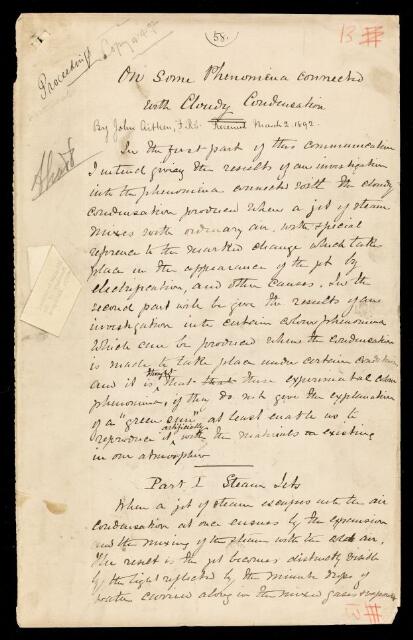 58.
13
Proceedings
Copy
On Some Phenomena connected
with Cloudy Condensation
By John Aitken, F.R.S. Received March 2 1892.
In the first part of this communication
I intend giving the results of an investigation
into the phenomena connected with the cloudy
condensation produced when a jet of steam
mixes with ordinary air, with special
reference to the marked change which take
place in the appearance of the jet by
electrification, and other causes. In the
second part will be give the results of an
investigation into certain colour phenomena
which can be produced when the condensation
is made to take place under certain conditions
and it is thought that these experimental colour
phenomina, if they do not give the explanation
of a "green sun" at least enable us to
reproduce it artificially with the materials existing
in our atmosphere
Part I Steam Jets
When a jet of steam escapes into the air
condensation at once ensues by the expansion
and the mixing of the steam with the cold air.
The result is the jet becomes distinctly visible
by the light reflected by the minute drops of
water carried along in the mixed gases &